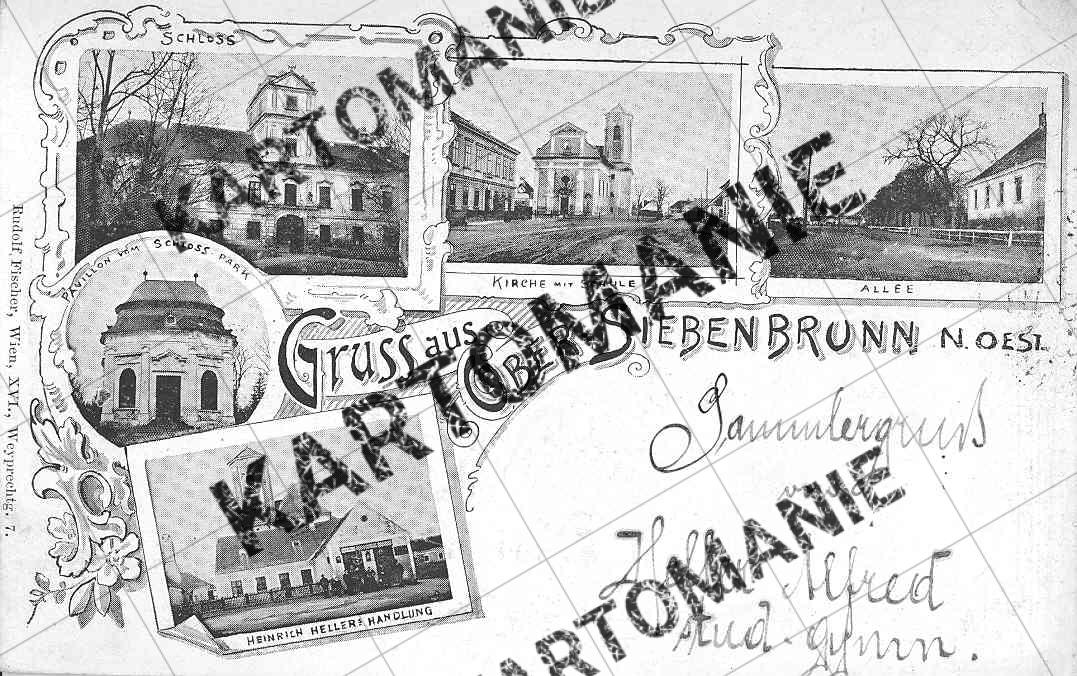 SCHLOSS
PAVILLON VOM SCHLOSS-PARK
KIRCHE MIT SCHULE
ALLEE
Gruss aus OBER SIEBENBRUNN N. OEST.
HEINRICH HELLERS HANDLUNG
Rudolf Fischer, Wien, XVI., Weyprechtg. 7.
Sammlergruß
Alfred
stud. gymn.
KARTOMANIE
KARTOMANIE
KARTOMANIE
KARTOMANIE
KARTOMANIE